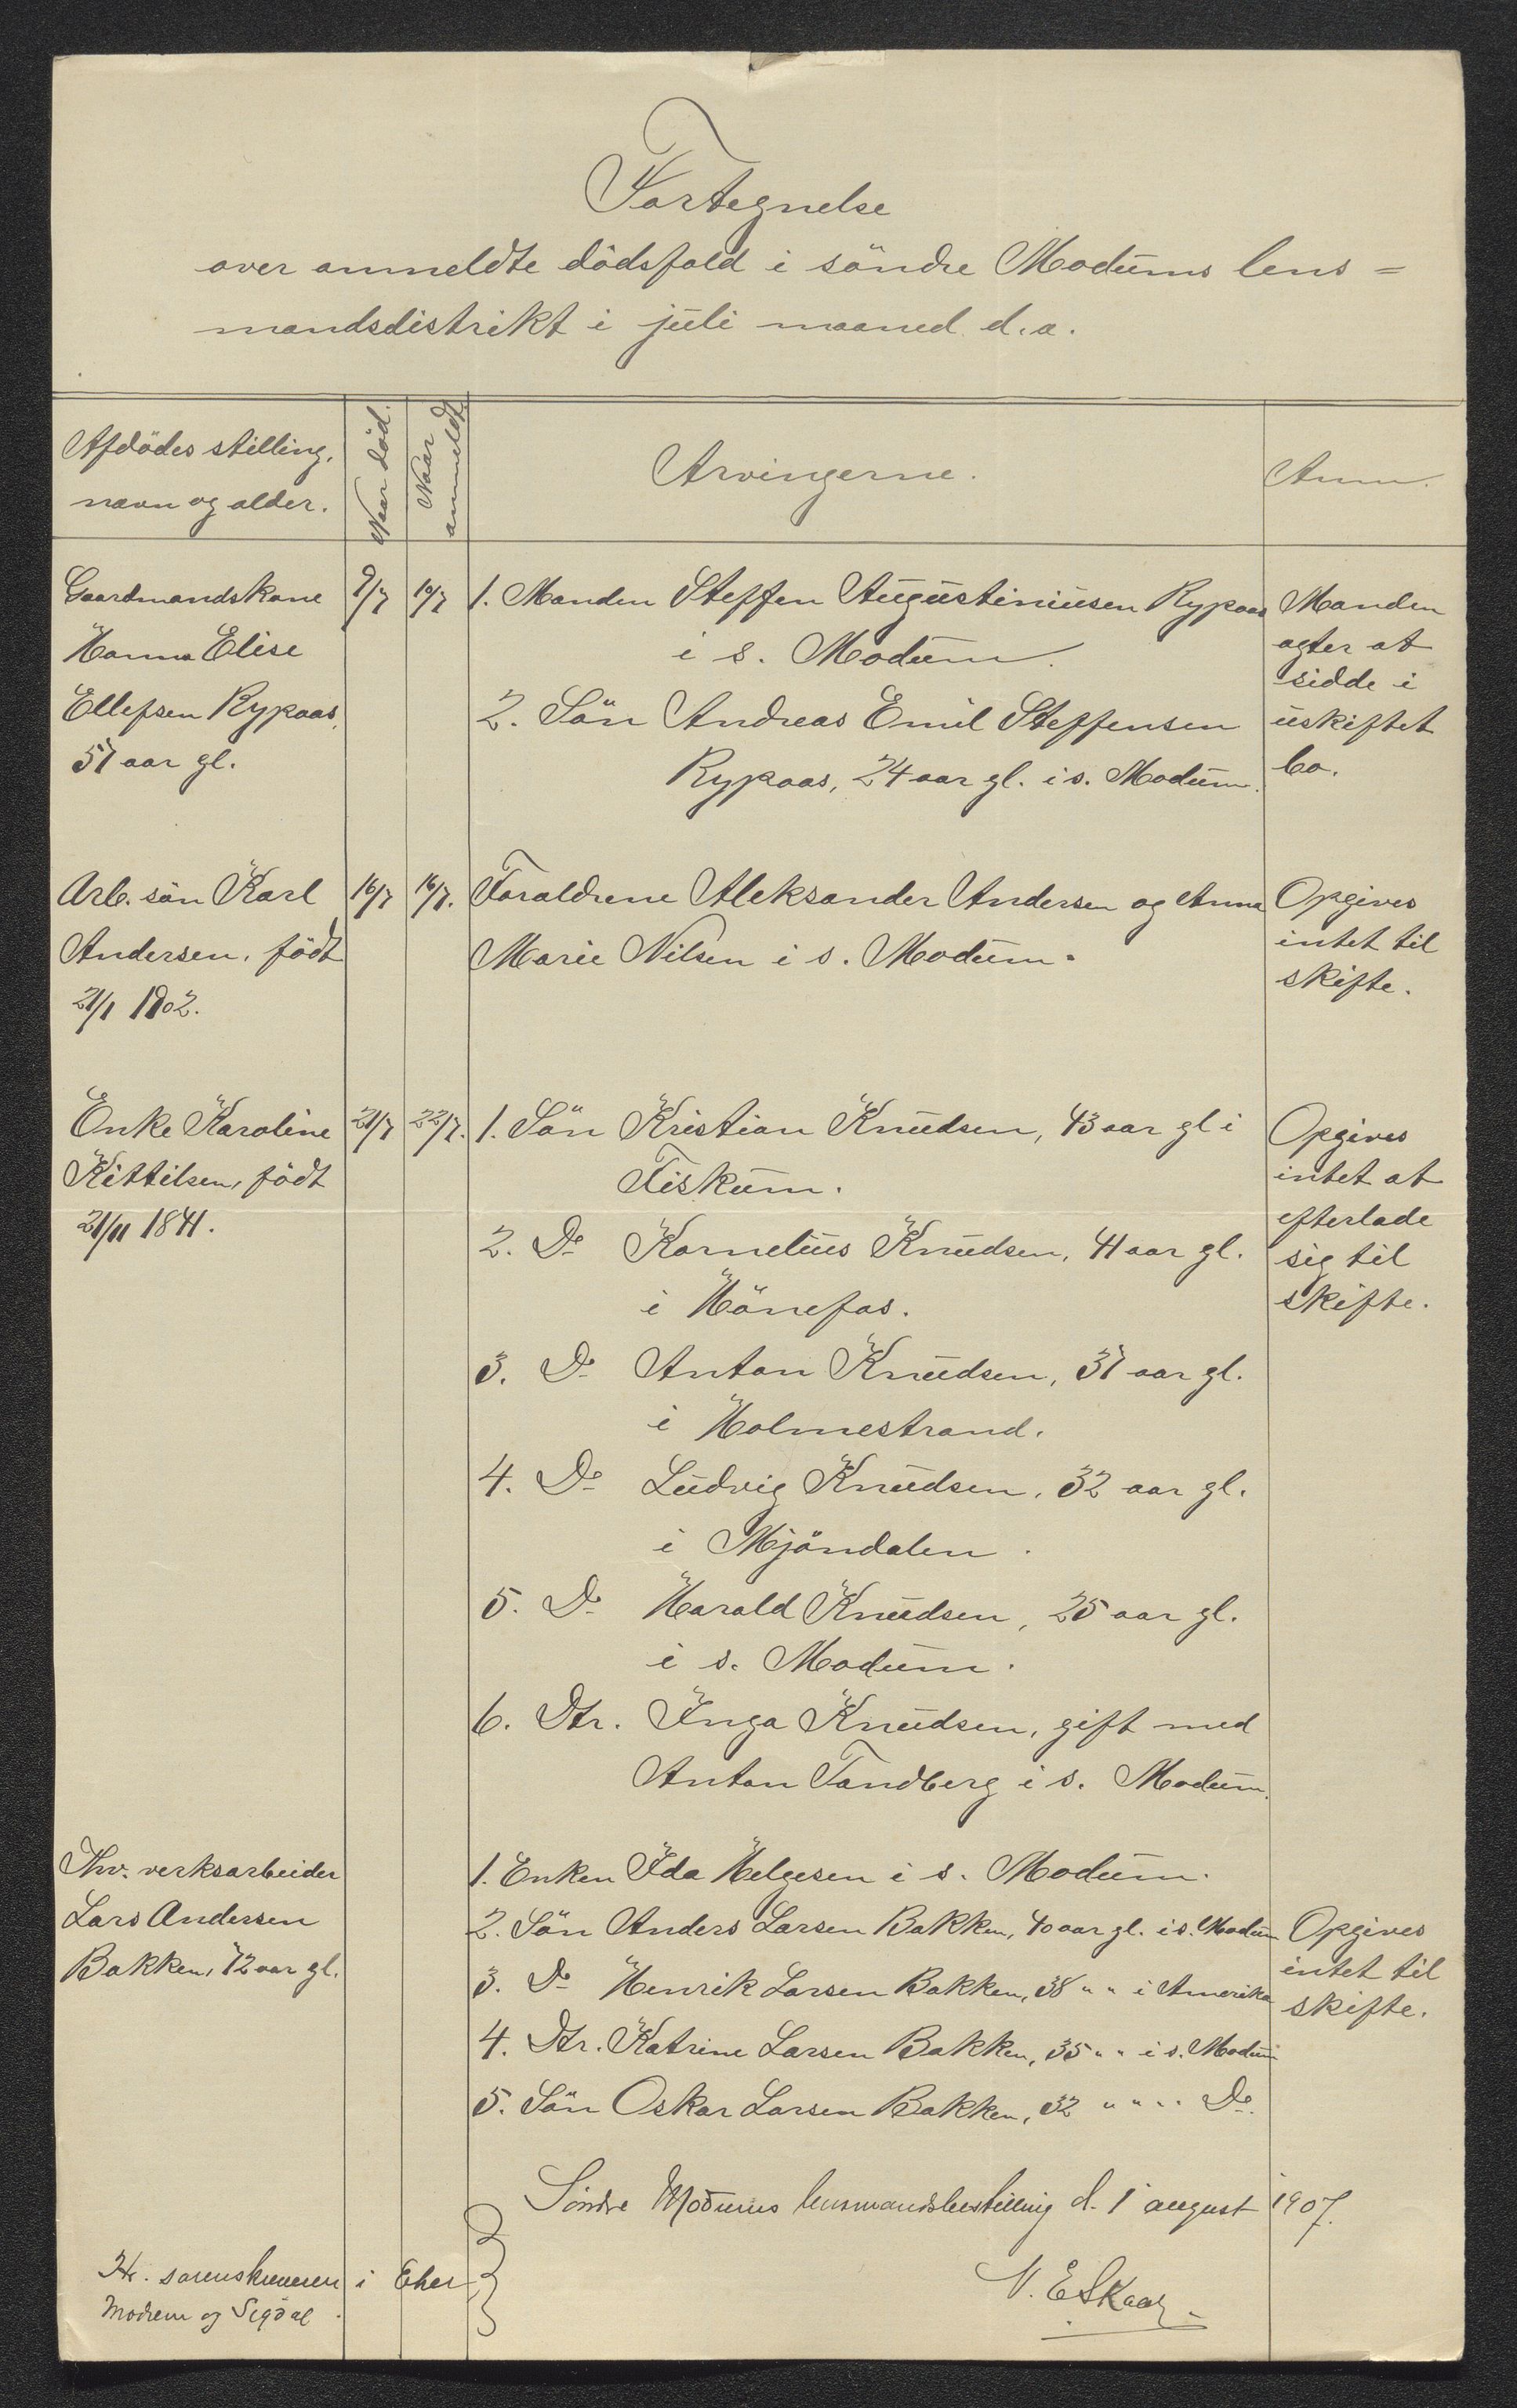 Fortegnelse
over anmeldte dödsfald i söndre Modums lens=
mandsdistrikt i juli maaned d.a.
Afdödes stilling,
navn og alder.
Naar död.
Naar
anmeldt.
Arvingerne.
Anm.
Gaardmandskone
Hanna Elise
Ellefsen Rypaas,
57 aar gl.
9/7
10/7
1. Manden Steffen Augustiniusen Rypaas
i s. Modum.
2. Sön Andreas Emil Steffensen
Rypaas, 24 aar gl. i s. Modum.
Manden
agter at
sidde i
uskiftet
bo.
Arb. sön Karl
Andersen, födt
21/1 1902.
16/7
16/7.
Foraldrene Aleksander Andersen og Anna
Marie Nilsen i s. Modum.
Opgives
intet til
skifte.
Enke Karoline
Kittilsen, födt
21/11 1841.
21/7
22/7.
1. Sön Kristian Knudsen, 43 aar gl i
Fiskum.
2. Do Kornelius Knudsen, 41 aar gl.
i Hönefos.
3. Do Anton Knudsen, 37 aar gl.
i Holmestrand.
4. Do Ludvig Knudsen, 32 aar gl.
i Mjöndalen.
5. Do Harald Knudsen, 25 aar gl.
i s. Modum.
6. Dtr. Inga Knudsen, gift med
Anton Tandberg i s. Modum.
Opgives
intet at
efterlade
sig til
skifte.
Fhv. verksarbeider
Lars Andersen
Bakken, 72 aar gl.
1. Enken Ida Helgesen i s. Modum.
2. Sön Anders Larsen Bakken, 40 aar gl. i s. Modum
3. Do Henrik Larsen Bakken, 38 " " i Amerika
4. Dtr. Katrine Larsen Bakken, 35 " " i s. Modum
5. Sön Oskar Larsen Bakken, 32 " " " " Do.
Opgives
intet til
skifte.
Söndre Modums lensmandsbestilling d. 1 august 1907.
Hr. sorenskriveren i Eker
Modum og Sigdal.
N. E Skaar